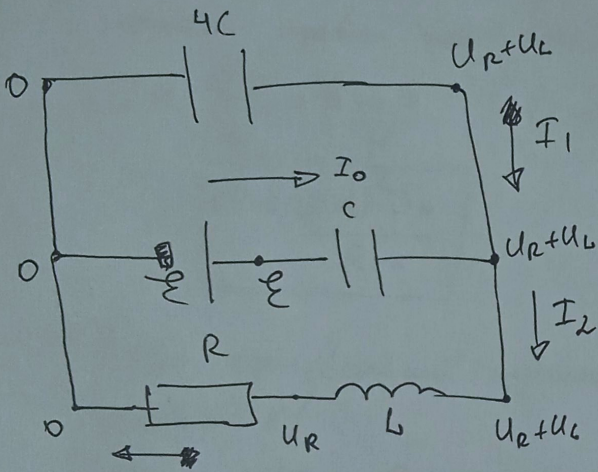 4C
0
U_R+U_L
I_1
I_0
C
0
ℰ
ℰ
U_R+U_L
I_2
R
0
U_R
L
U_R+U_L